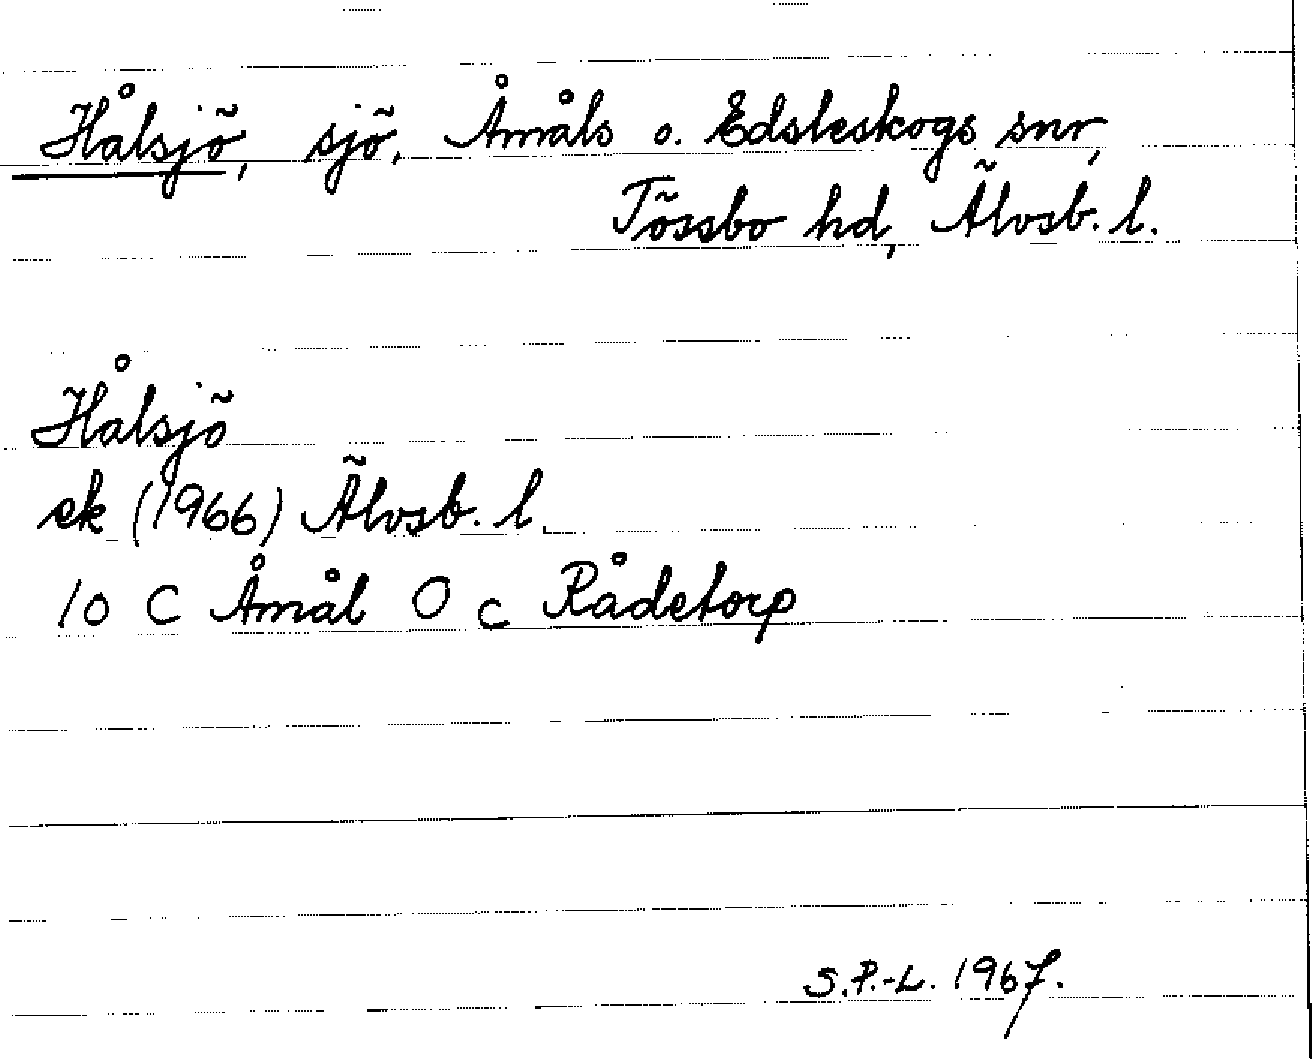 Hålsjö, sjö. Åmåls o. Edsleskogs snr,
Tössbo hd, Älvsb. l.
Hålsjö
ek (1966) Älvsb. l.
10 C Åmål O c Rådetorp
S.P.-L. 1967.